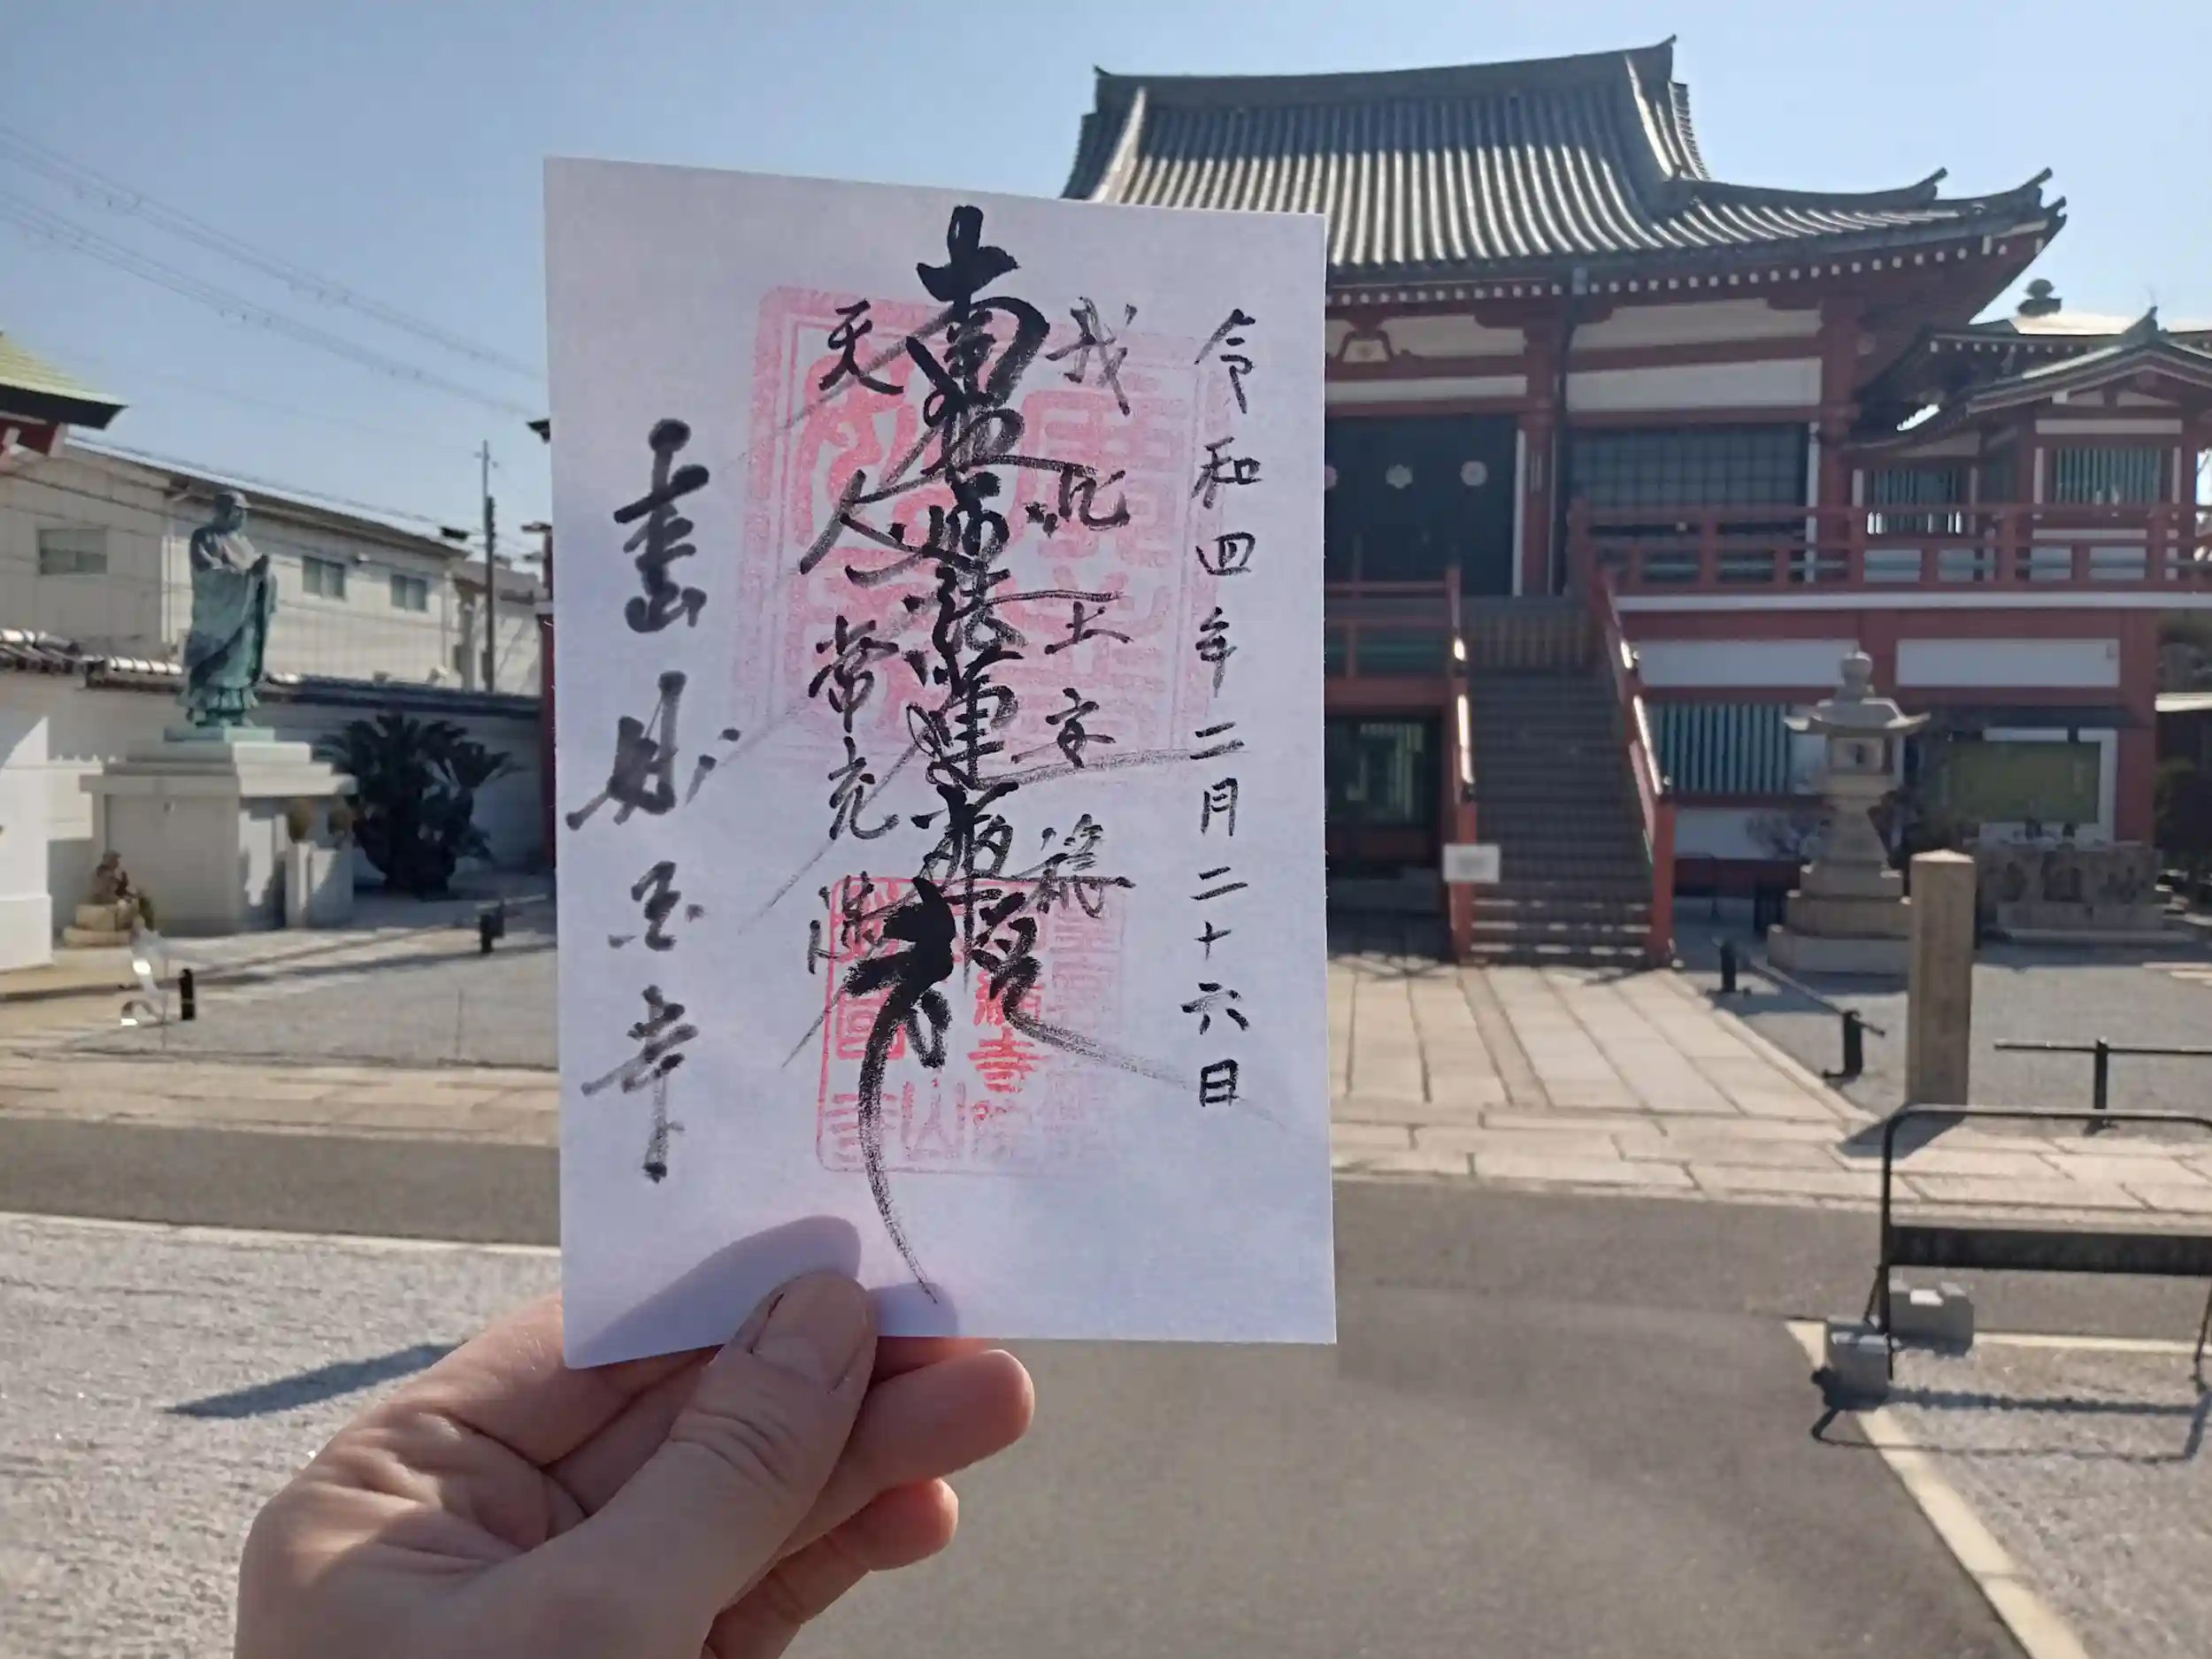 令和四年二月二十六日
我此土安穏
南無妙法蓮華経
天人常充満
妙国寺